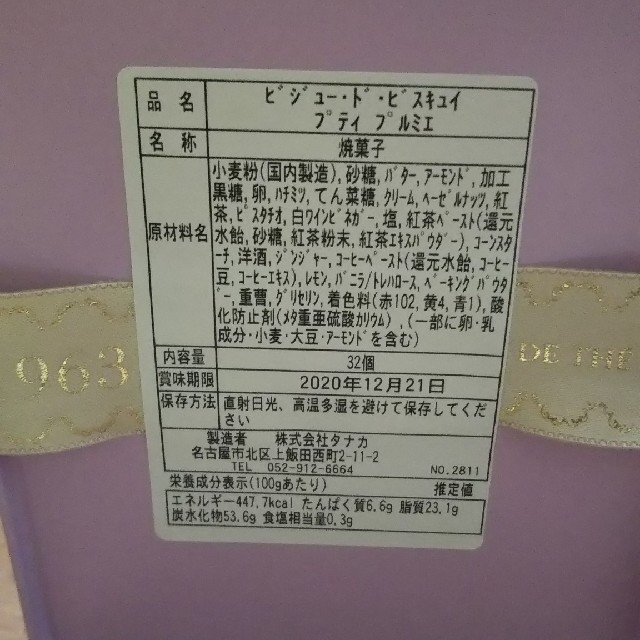 品名 ビジュー・ド・ビスキュイ
プティ プルミエ
名称 焼菓子
原材料名 小麦粉(国内製造),砂糖,バター,アーモンド,加工
黒糖,卵,ハチミツ,てん菜糖,クリーム,ヘーゼルナッツ,紅
茶,ピスタチオ,白ワインビネガー,塩,紅茶ペースト(還元
水飴,砂糖,紅茶粉末,紅茶エキスパウダー),コーンスタ
ーチ,洋酒,ジンジャー,コーヒーペースト(還元水飴,コーヒー
豆,コーヒーエキス),レモン,バニラ/トレハロース,ベーキングパウダ
ー,重曹,グリセリン,着色料(赤102,黄4,青1),酸
化防止剤(メタ重亜硫酸カリウム),(一部に卵・乳
成分・小麦・大豆・アーモンドを含む)
内容量 32個
賞味期限 2020年12月21日
保存方法 直射日光、高温多湿を避けて保存してくだ
さい
製造者 株式会社タナカ
名古屋市北区上飯田西町2-11-2
TEL 052-912-6664 NO.2811
栄養成分表示(100gあたり) 推定値
エネルギー447.7kcal たんぱく質6.6g 脂質23.1g
炭水化物53.6g 食塩相当量0.3g
963
DE THE